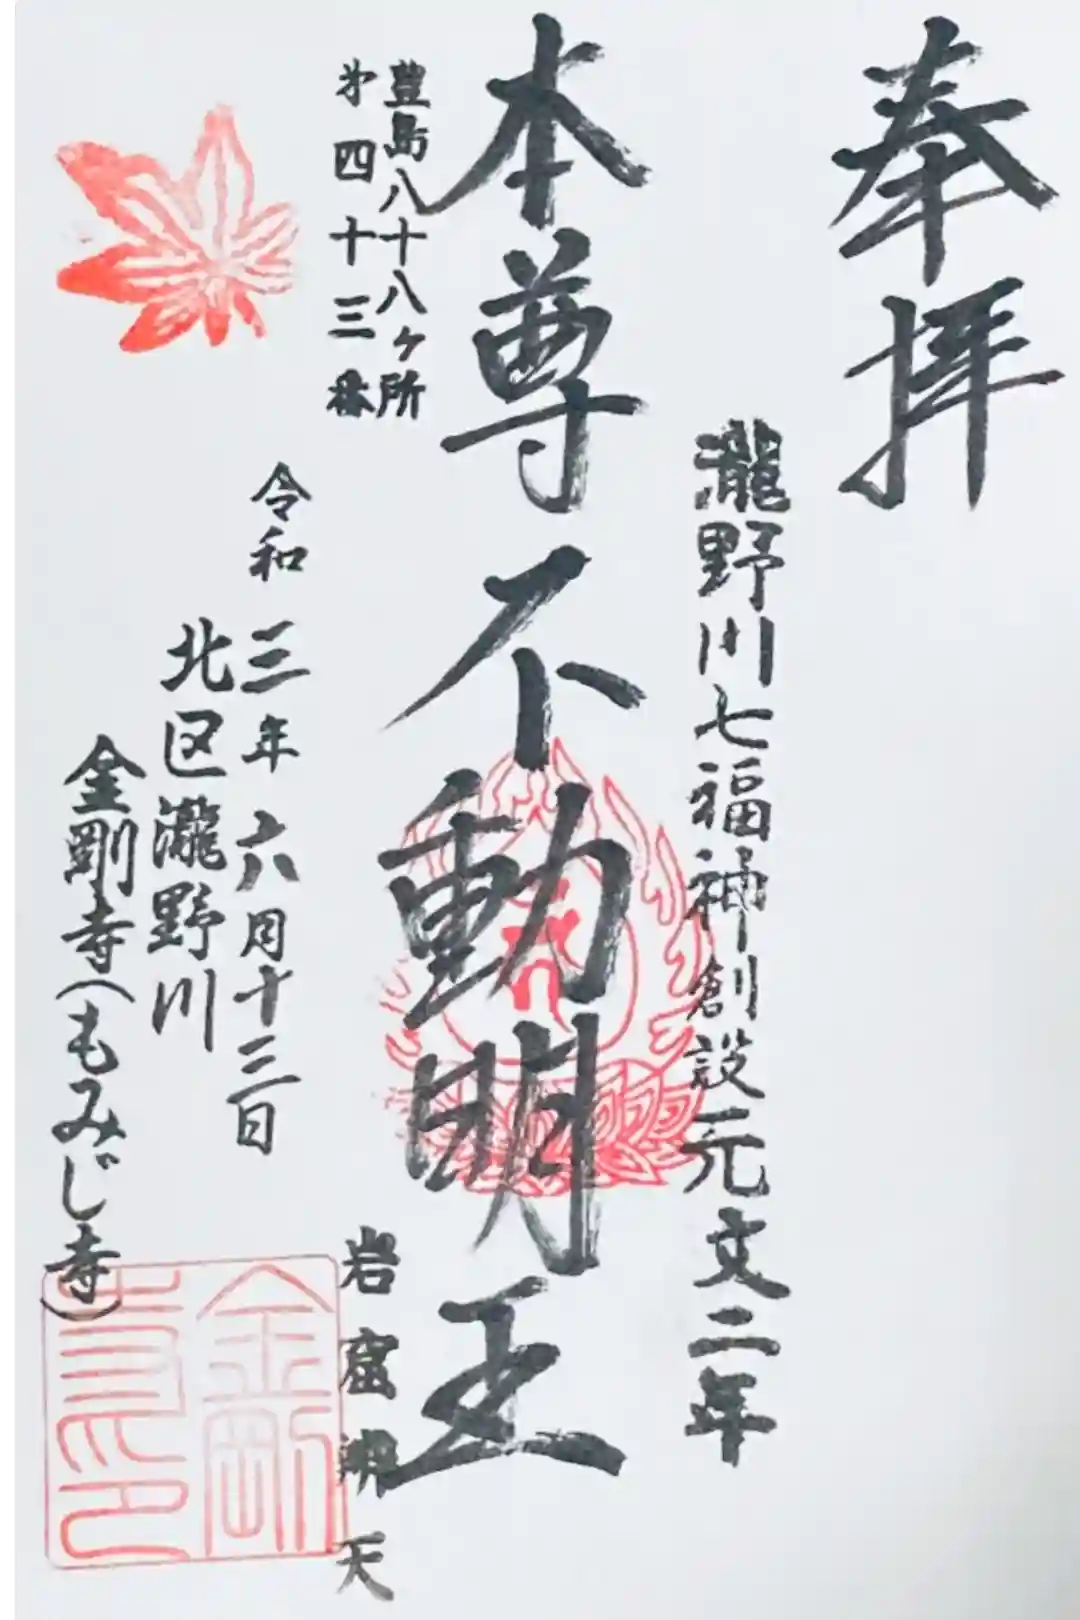 奉拝
瀧野川七福神創設元文二年
本尊不動明王
豊島八十八ヶ所
第四十三番
岩窟弁天
令和三年六月十三日
北区瀧野川
金剛寺(もみじ寺)
金剛
寺印